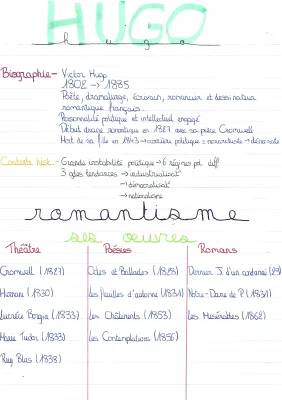 HUGO
hugo
Biographie- Victor Hugo
1802 → 1885
Poète, dramaturge, écrivain, romancier et dessinateur
romantique français.
Personnalité politique et intellectuel engagé
Début drame romantique en 1827 avec sa pièce Cromwell
Mort de sa fille en 1843 → carrière politique = monarchiste → démocrate
Contexte hist.- Grande instabilité politique → 6 régimes pol. diff
3 gdes tendances → industrialisat°
→ démocratisat°
→ nationalisme
romantisme
ses oeuvres
Théâtre Poésies Romans
Cromwell (1827) Odes et Ballades (1828) Dernier J. d'un condamné (29)
Hernani (1830) Les feuilles d'automne (1831) Notre-Dame de P. (1831)
Lucrèce Borgia (1833) Les Châtiments (1853) Les Misérables (1862)
Marie Tudor (1833) Les Contemplations (1856)
Ruy Blas (1838)